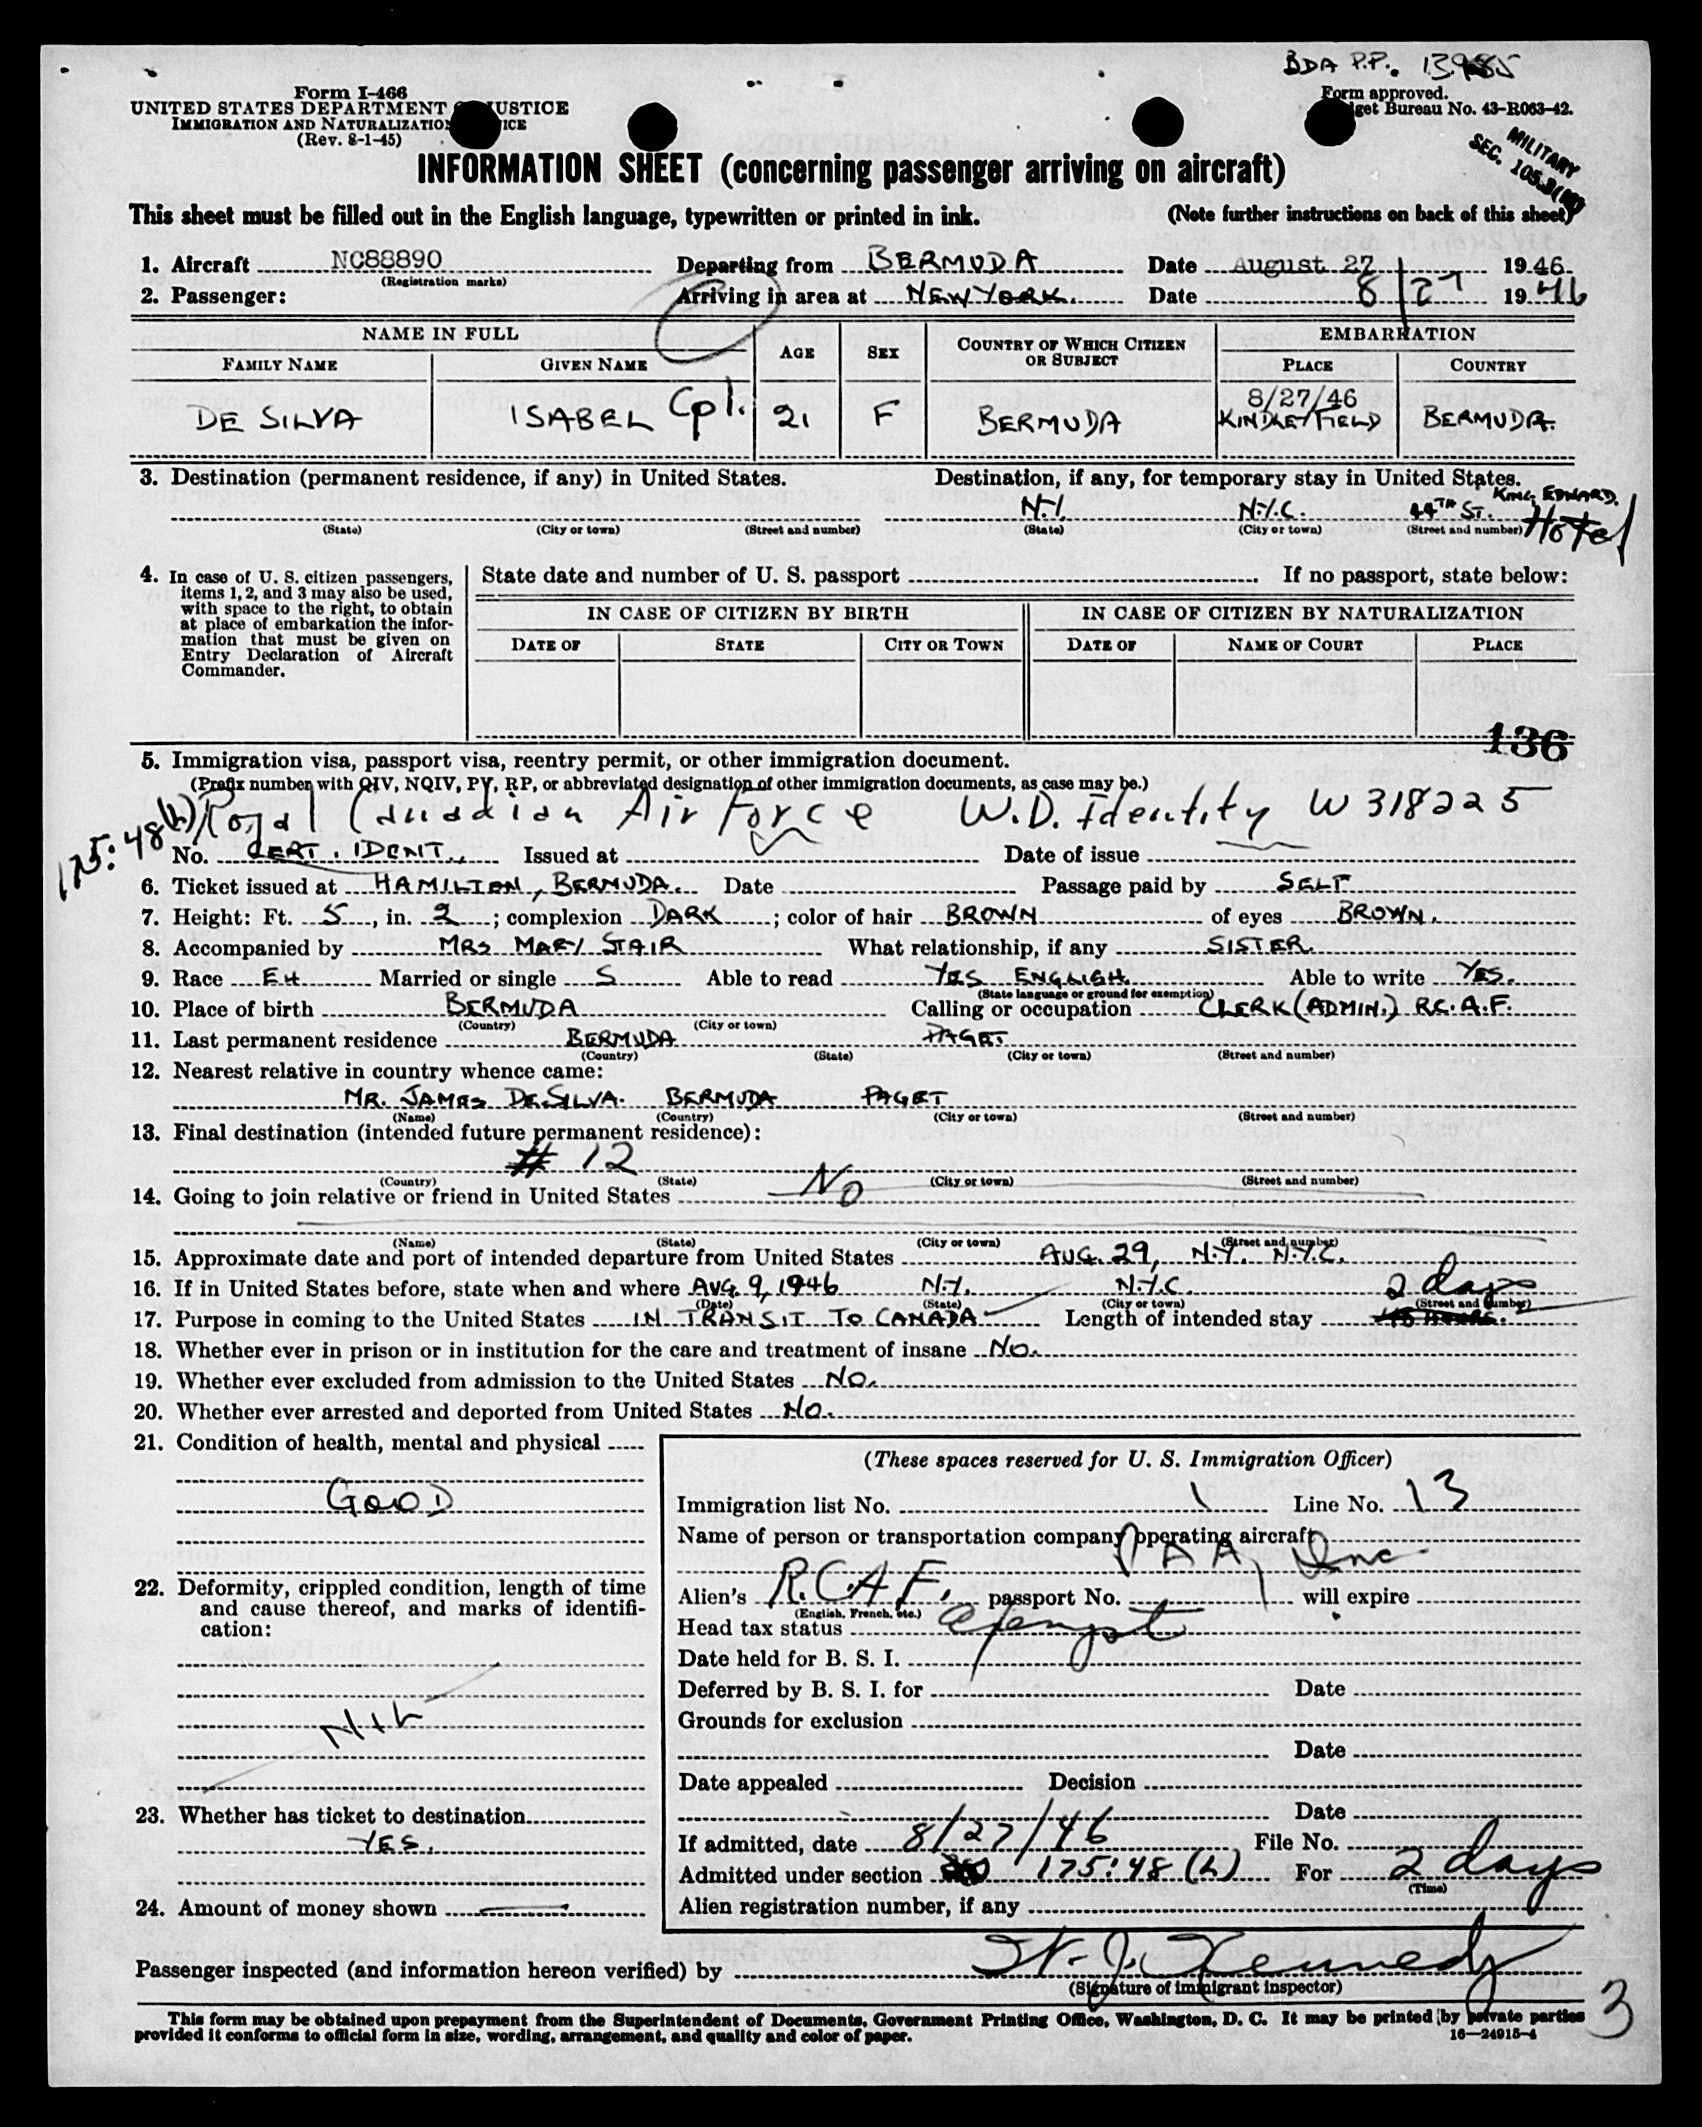 BDA P.P. 13985
Form I-466
UNITED STATES DEPARTMENT OF JUSTICE
IMMIGRATION AND NATURALIZATION SERVICE
(Rev. 8-1-45)
Form approved.
Budget Bureau No. 43-R063-42.
MILITARY
SEC. 105.3
INFORMATION SHEET (concerning passenger arriving on aircraft)
This sheet must be filled out in the English language, typewritten or printed in ink. (Note further instructions on back of this sheet)
1. Aircraft NC88890 Departing from BERMUDA Date August 27 1946
(Registration marks)
2. Passenger: Arriving in area at NEW YORK. Date 8/27 1946
NAME IN FULL AGE SEX COUNTRY OF WHICH CITIZEN OR SUBJECT EMBARKATION
FAMILY NAME GIVEN NAME PLACE COUNTRY
8/27/46
DE SILVA ISABEL Cpl. 21 F BERMUDA KINDLEY FIELD BERMUDA.
3. Destination (permanent residence, if any) in United States. Destination, if any, for temporary stay in United States.
N.Y. N.Y.C. 44TH ST. KING EDWARD. Hotel
(State) (City or town) (Street and number) (State) (City or town) (Street and number)
4. In case of U. S. citizen passengers, items 1, 2, and 3 may also be used, with space to the right, to obtain at place of embarkation the information that must be given on Entry Declaration of Aircraft Commander.
State date and number of U. S. passport If no passport, state below:
IN CASE OF CITIZEN BY BIRTH IN CASE OF CITIZEN BY NATURALIZATION
DATE OF STATE CITY OR TOWN DATE OF NAME OF COURT PLACE
136
5. Immigration visa, passport visa, reentry permit, or other immigration document.
(Prefix number with QIV, NQIV, PV, RP, or abbreviated designation of other immigration documents, as case may be.)
175:48(h) Royal Canadian Air Force W.D. Identity W318225
No. CERT. IDENT. Issued at Date of issue
6. Ticket issued at HAMILTON, BERMUDA. Date Passage paid by SELF
7. Height: Ft. 5, in. 2; complexion DARK; color of hair BROWN of eyes BROWN.
8. Accompanied by MRS MARY STAIR What relationship, if any SISTER.
9. Race EH Married or single S Able to read YES ENGLISH. Able to write YES.
(State language or ground for exemption)
10. Place of birth BERMUDA Calling or occupation CLERK (ADMIN.) R.C.A.F.
(Country) (City or town)
11. Last permanent residence BERMUDA PAGET
(Country) (State) (City or town) (Street and number)
12. Nearest relative in country whence came:
MR. JAMES DE SILVA. BERMUDA PAGET
(Name) (Country) (City or town) (Street and number)
13. Final destination (intended future permanent residence):
# 12
(Country) (State) (City or town) (Street and number)
14. Going to join relative or friend in United States No
(Name) (State) (City or town) (Street and number)
15. Approximate date and port of intended departure from United States AUG. 29, N.Y. N.Y.C.
16. If in United States before, state when and where AUG. 9, 1946 N.Y. N.Y.C. 2 days
(Date) (State) (City or town) (Street and number)
17. Purpose in coming to the United States IN TRANSIT TO CANADA Length of intended stay 48 HOURS.
18. Whether ever in prison or in institution for the care and treatment of insane NO.
19. Whether ever excluded from admission to the United States NO.
20. Whether ever arrested and deported from United States NO.
21. Condition of health, mental and physical
GOOD
22. Deformity, crippled condition, length of time and cause thereof, and marks of identification:
NIL
23. Whether has ticket to destination
YES.
24. Amount of money shown
(These spaces reserved for U. S. Immigration Officer)
Immigration list No. 1 Line No. 13
Name of person or transportation company operating aircraft
PAA, Inc
Alien's R.C.A.F. passport No. will expire
(English, French, etc.)
Head tax status exempt
Date held for B. S. I.
Deferred by B. S. I. for Date
Grounds for exclusion
Date
Date appealed Decision
Date
If admitted, date 8/27/46 File No.
Admitted under section 175:48 (h) For 2 days
(Time)
Alien registration number, if any
Passenger inspected (and information hereon verified) by W. J. Kennedy
(Signature of immigrant inspector)
3
This form may be obtained upon prepayment from the Superintendent of Documents, Government Printing Office, Washington, D. C. It may be printed by private parties
provided it conforms to official form in size, wording, arrangement, and quality and color of paper. 16—24915-4